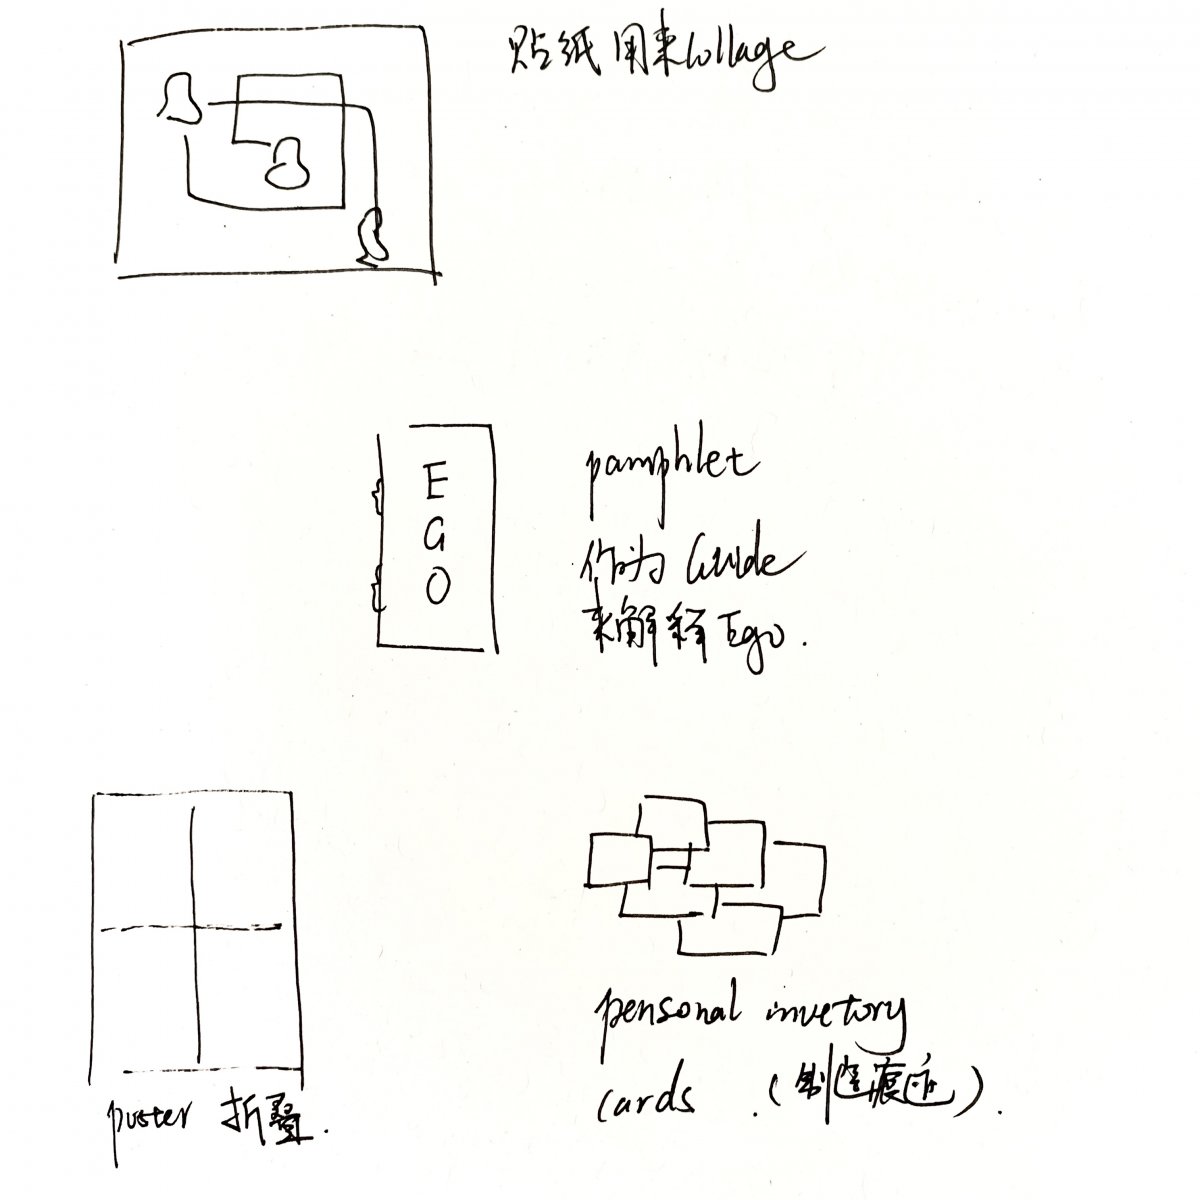 贴纸用来collage
E
G
O
pamphlet
作为 Guide
来解释Ego.
poster 折叠.
personal invetory
cards .(制造痕迹).